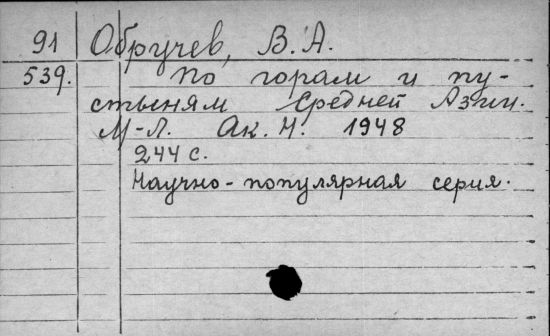 91 Обручев, В. А.
539. По горам и пу-
стыням Средней Азии.
М-Л. Ак. Н. 1948
244 с.
Научно-популярная серия.